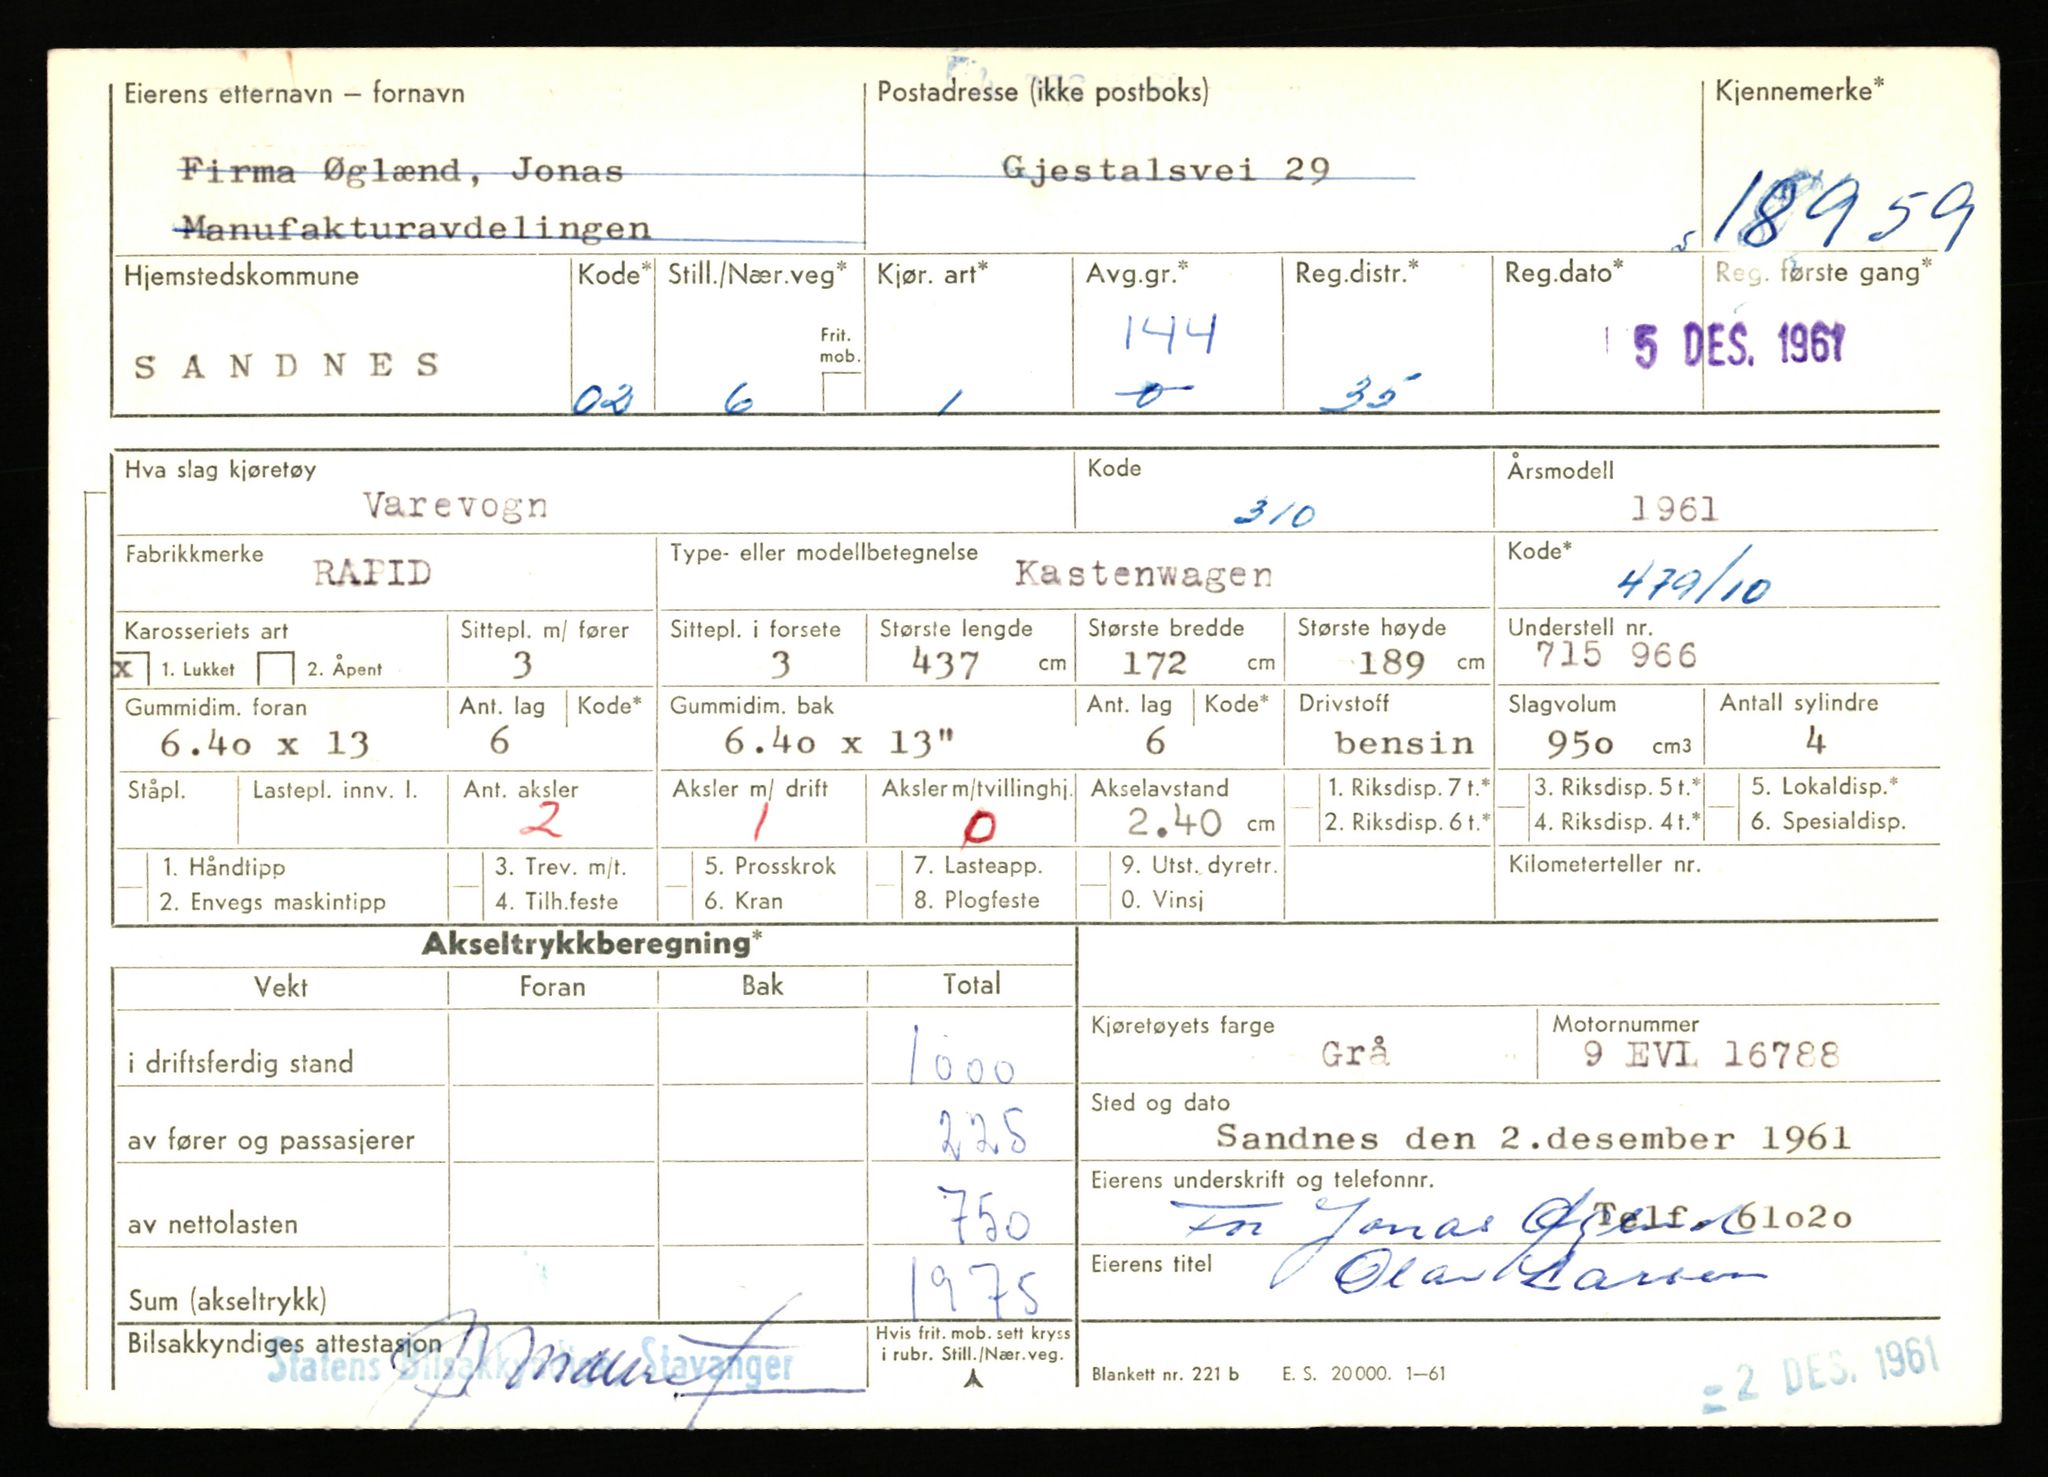 Eierens etternavn – fornavn Postadresse (ikke postboks) Kjennemerke*
Firma Øglænd, Jonas Gjestalsvei 29
Manufakturavdelingen
s 18959
Hjemstedskommune Kode* Still./Nær.veg* Kjør. art* Avg.gr.* Reg.distr.* Reg.dato* Reg. første gang*
Frit. mob.
144
5 DES. 1961
SANDNES 02 6 1 0 35
Hva slag kjøretøy Kode Årsmodell
Varevogn 310 1961
Fabrikkmerke Type- eller modellbetegnelse Kode*
RAPID Kastenwagen 479/10
Karosseriets art Sittepl. m/ fører Sittepl. i forsete Største lengde Største bredde Største høyde Understell nr.
x 1. Lukket 2. Åpent 3 3 437 cm 172 cm 189 cm 715 966
Gummidim. foran Ant. lag Kode* Gummidim. bak Ant. lag Kode* Drivstoff Slagvolum Antall sylindre
6.4o x 13 6 6.4o x 13" 6 bensin 95o cm3 4
Ståpl. Lastepl. innv. l. Ant. aksler Aksler m/ drift Aksler m/tvillinghj. Akselavstand 1. Riksdisp. 7 t.* 3. Riksdisp. 5 t.* 5. Lokaldisp.*
2 1 0 2.40 cm 2. Riksdisp. 6 t.* 4. Riksdisp. 4 t.* 6. Spesialdisp.
1. Håndtipp 3. Trev. m/t. 5. Prosskrok 7. Lasteapp. 9. Utst. dyretr. Kilometerteller nr.
2. Envegs maskintipp 4. Tilh.feste 6. Kran 8. Plogfeste 0. Vinsj
Akseltrykkberegning*
Vekt Foran Bak Total
Kjøretøyets farge Motornummer
i driftsferdig stand 1000 Grå 9 EVL 16788
Sted og dato
av fører og passasjerer 225 Sandnes den 2.desember 1961
Eierens underskrift og telefonnr.
av nettolasten 750 For Jonas Øglænd Telf. 61o2o
Eierens titel Olav Larsen
Sum (akseltrykk) 1975
Bilsakkyndiges attestasjon Hvis frit. mob. sett kryss
i rubr. Still./Nær.veg.
Statens Bilsakkyndige Stavanger
Blankett nr. 221 b E. S. 20000. 1–61
- 2 DES. 1961